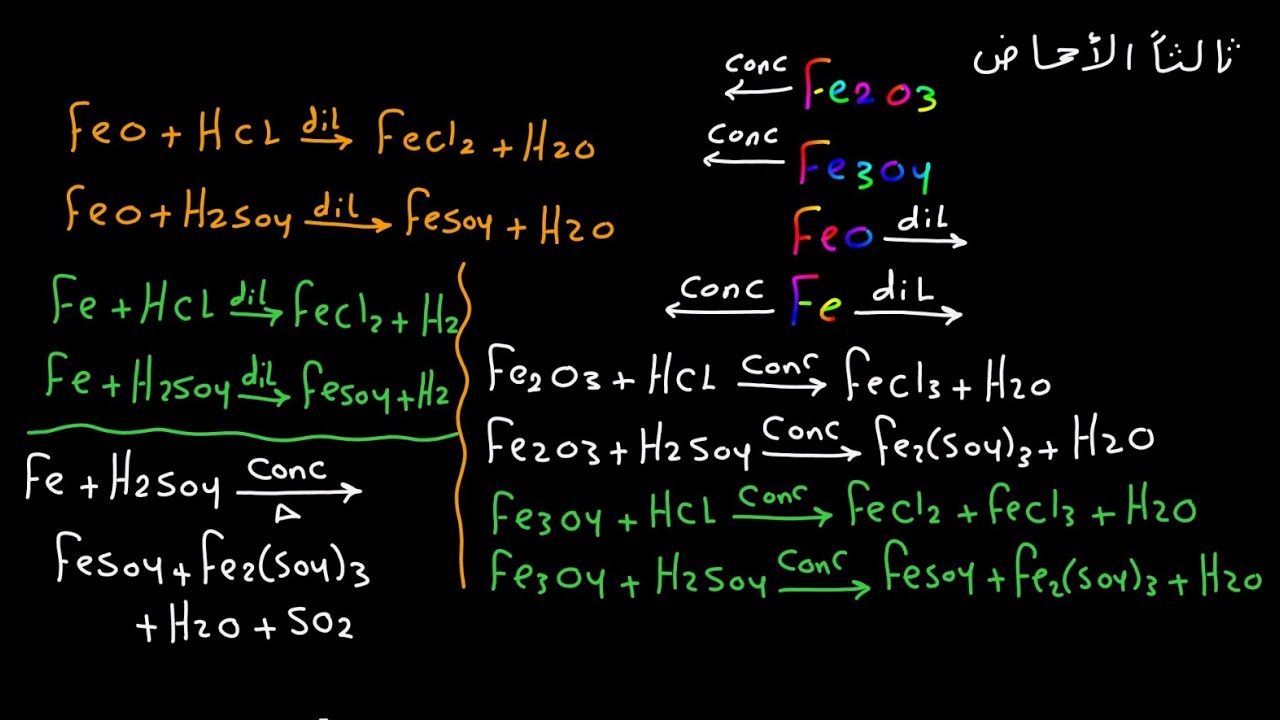 ثالثاً الأحماض
Conc ← Fe2O3
Conc ← Fe3O4
FeO dil →
Conc ← Fe dil →
FeO + HCL dil → FeCl2 + H2O
FeO + H2SO4 dil → FeSO4 + H2O
Fe + HCL dil → FeCl2 + H2
Fe + H2SO4 dil → FeSO4 + H2
Fe + H2SO4 Conc → Δ
FeSO4 + Fe2(SO4)3
+ H2O + SO2
Fe2O3 + HCL Conc → FeCl3 + H2O
Fe2O3 + H2SO4 Conc → Fe2(SO4)3 + H2O
Fe3O4 + HCL Conc → FeCl2 + FeCl3 + H2O
Fe3O4 + H2SO4 Conc → FeSO4 + Fe2(SO4)3 + H2O